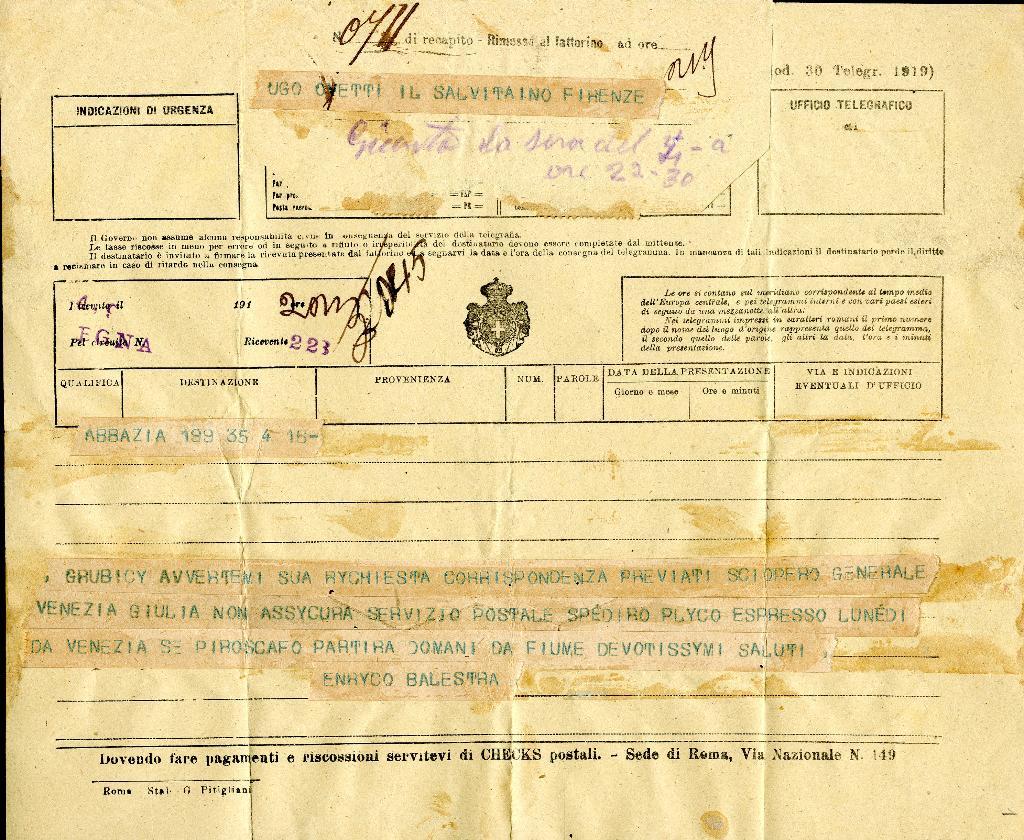 di recapito - Rimesso al fattorino ad ore
od. 30 Telegr. 1919)
UGO OJETTI IL SALVITAINO FIRENZE
INDICAZIONI DI URGENZA
UFFICIO TELEGRAFICO
di
Giunto la sera del
ore 22-30
Il Governo non assume alcuna responsabilità civile in conseguenza del servizio della telegrafia.
Le tasse riscosse in meno per errore od in seguito a rifiuto o irreperibilità del destinatario devono essere completate dal mittente.
Il destinatario è invitato a firmare la ricevuta presentata dal fattorino e a segnarvi la data e l'ora della consegna del telegramma. In mancanza di tali indicazioni il destinatario perde il diritto
a reclamare in caso di ritardo nella consegna
191 ore
EGNA
Ricevente 223
Le ore si contano sul meridiano corrispondente al tempo medio
dell'Europa centrale, e pei telegrammi interni e con vari paesi esteri
di seguito da una mezzanotte all'altra.
Nei telegrammi impressi in caratteri romani il primo numero
dopo il nome del luogo d'origine rappresenta quello del telegramma,
il secondo quello delle parole, gli altri la data, l'ora e i minuti
della presentazione.
QUALIFICA DESTINAZIONE PROVENIENZA NUM. PAROLE DATA DELLA PRESENTAZIONE VIA E INDICAZIONI
EVENTUALI D'UFFICIO
Giorno e mese Ore e minuti
ABBAZIA 199 35 4 16-
, GRUBICY AVVERTEMI SUA RYCHIESTA CORRISPONDENZA PREVIATI SCIOPERO GENERALE
VENEZIA GIULIA NON ASSYCURA SERVIZIO POSTALE SPÉDIRO PLYCO ESPRESSO LUNÉDI
DA VENEZIA SE PIROSCAFO PARTIRA DOMANI DA FIUME DEVOTISSYMI SALUTI ,
ENRYCO BALESTRA
Dovendo fare pagamenti e riscossioni servitevi di CHECKS postali. - Sede di Roma, Via Nazionale N. 149
Roma Stab. G. Pitigliani